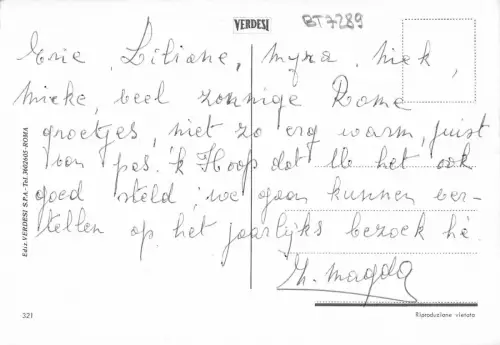 VERDESI
BT7289
Eric, Liliane, Myra, Niek,
Mieke, veel zonnige Rome
groetjes, niet zo erg warm, juist
van pas. 'k Hoop dat llo het ook
goed steld; we gaan kunnen ver-
tellen op het jaarlijks bezoek hé.
Magda
Ediz. VERDESI S.P.A.-Tel. 3602605-ROMA
321
Riproduzione vietata